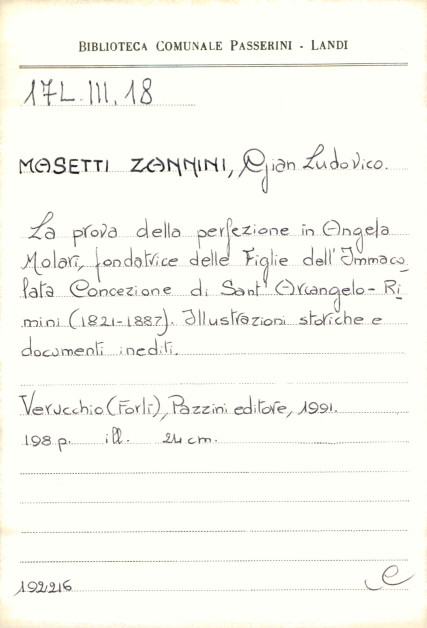 BIBLIOTECA COMUNALE PASSERINI - LANDI
17L.III.18
MASETTI ZANNINI, Gian Ludovico.
La prova della perfezione in Angela
Molari, fondatrice delle Figlie dell'Immaco_
lata Concezione di Sant'Arcangelo - Ri_
mini (1821-1887). Illustrazioni storiche e
documenti inediti.
Verucchio (Forlì), Pazzini editore, 1991.
198 p. ill. 24 cm.
192216 e